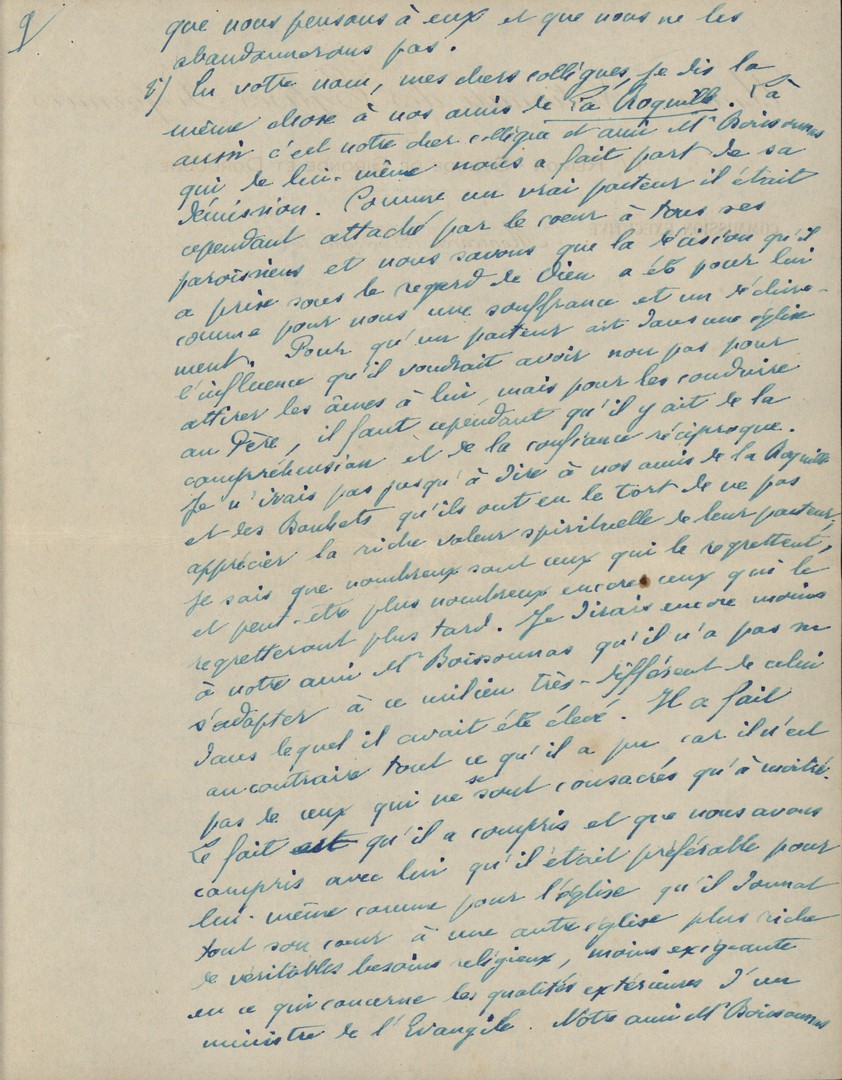 9
que nous pensons à eux et que nous ne les
abandonnerons pas.
8) En votre nom, mes chers collègues, je dis la
même chose à nos amis de La Roquille. Là
aussi c'est notre cher collègue et ami Mr Boissonnas
qui de lui-même nous a fait part de sa
démission. Comme un vrai pasteur il était
cependant attaché par le coeur à tous ses
paroissiens et nous savons que la décision qu'il
a prise sous le regard de Dieu a été pour lui
comme pour nous une souffrance et un déchire-
ment. Pour qu'un pasteur ait dans une église
l'influence qu'il voudrait avoir non pas pour
attirer les âmes à lui, mais pour les conduire
au Père, il faut cependant qu'il y ait de la
compréhension et de la confiance réciproque.
Je n'irais pas jusqu'à dire à nos amis de la Roquille
et des Bouhets qu'ils ont eu le tort de ne pas
apprécier la riche valeur spirituelle de leur pasteur;
je sais que nombreux sont ceux qui le regrettent,
et peut-être plus nombreux encore ceux qui le
regretteront plus tard. Je dirais encore moins
à notre ami Mr Boissonnas qu'il n'a pas su
s'adapter à ce milieu très-différent de celui
dans lequel il avait été élevé. Il a fait
au contraire tout ce qu'il a pu car il n'est
pas de ceux qui ne se sont consacrés qu'à moitié.
Le fait est qu'il a compris et que nous avons
compris avec lui qu'il était préférable pour
lui-même comme pour l'église qu'il donnat
tout son coeur à une autre église plus riche
de véritables besoins religieux, moins exigeante
en ce qui concerne les qualités extérieures d'un
ministre de l'Evangile. Notre ami Mr Boissonnas